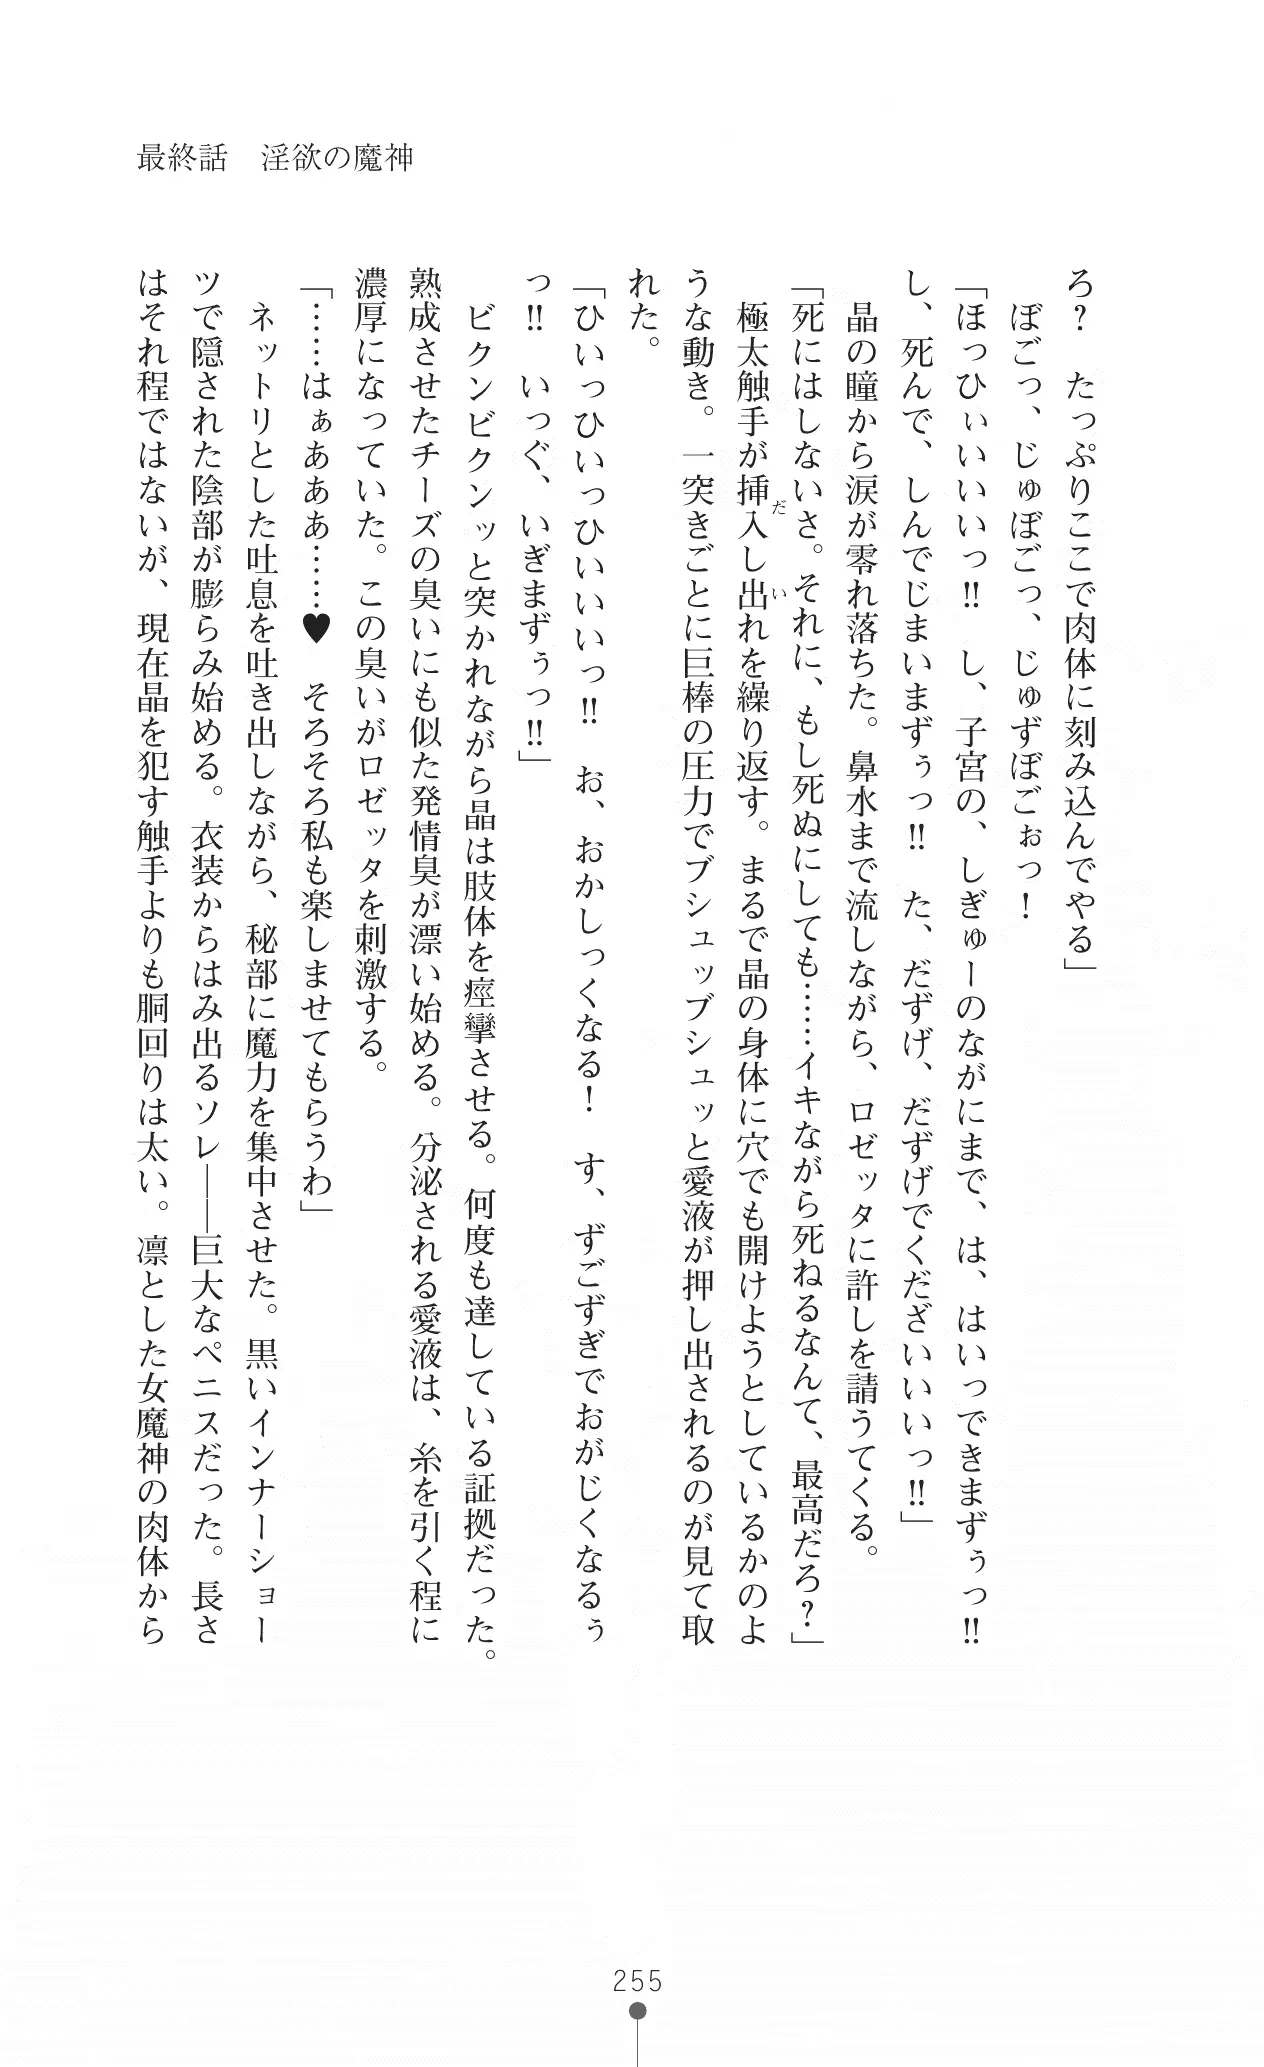 最終話　淫欲の魔神
ろ？　たっぷりここで肉体に刻み込んでやる」
　ぼごっ、じゅぼごっ、じゅずぼごぉっ！
「ほっひぃいいいっ‼　し、子宮の、しぎゅーのながにまで、は、はいっできまずぅっ‼
し、死んで、しんでじまいまずぅっ‼　た、だずげ、だずげでくだざいいいっ‼」
　晶の瞳から涙が零れ落ちた。鼻水まで流しながら、ロゼッタに許しを請うてくる。
「死にはしないさ。それに、もし死ぬにしても……イキながら死ねるなんて、最高だろ？」
　極太触手が挿入し出れを繰り返す。まるで晶の身体に穴でも開けようとしているかのよ
うな動き。一突きごとに巨棒の圧力でブシュッブシュッと愛液が押し出されるのが見て取
れた。
「ひいっひいっひいいいっ‼　お、おかしっくなる！　す、ずごずぎでおがじくなるぅ
っ‼　いっぐ、いぎまずぅっ‼」
　ビクンビクンッと突かれながら晶は肢体を痙攣させる。何度も達している証拠だった。
熟成させたチーズの臭いにも似た発情臭が漂い始める。分泌される愛液は、糸を引く程に
濃厚になっていた。この臭いがロゼッタを刺激する。
「……はぁあああ……♥　そろそろ私も楽しませてもらうわ」
　ネットリとした吐息を吐き出しながら、秘部に魔力を集中させた。黒いインナーショー
ツで隠された陰部が膨らみ始める。衣装からはみ出るソレ――巨大なペニスだった。長さ
はそれ程ではないが、現在晶を犯す触手よりも胴回りは太い。凛とした女魔神の肉体から
だ
い
255